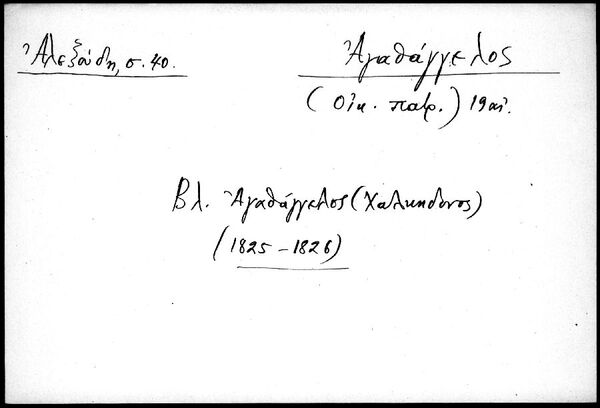 Ἀλεξούδη, σ. 40.
Ἀγαθάγγελος
(Οἰκ. πατρ.) 19 αἰ.
Βλ. Ἀγαθάγγελος (Χαλκηδόνος)
(1825-1826)